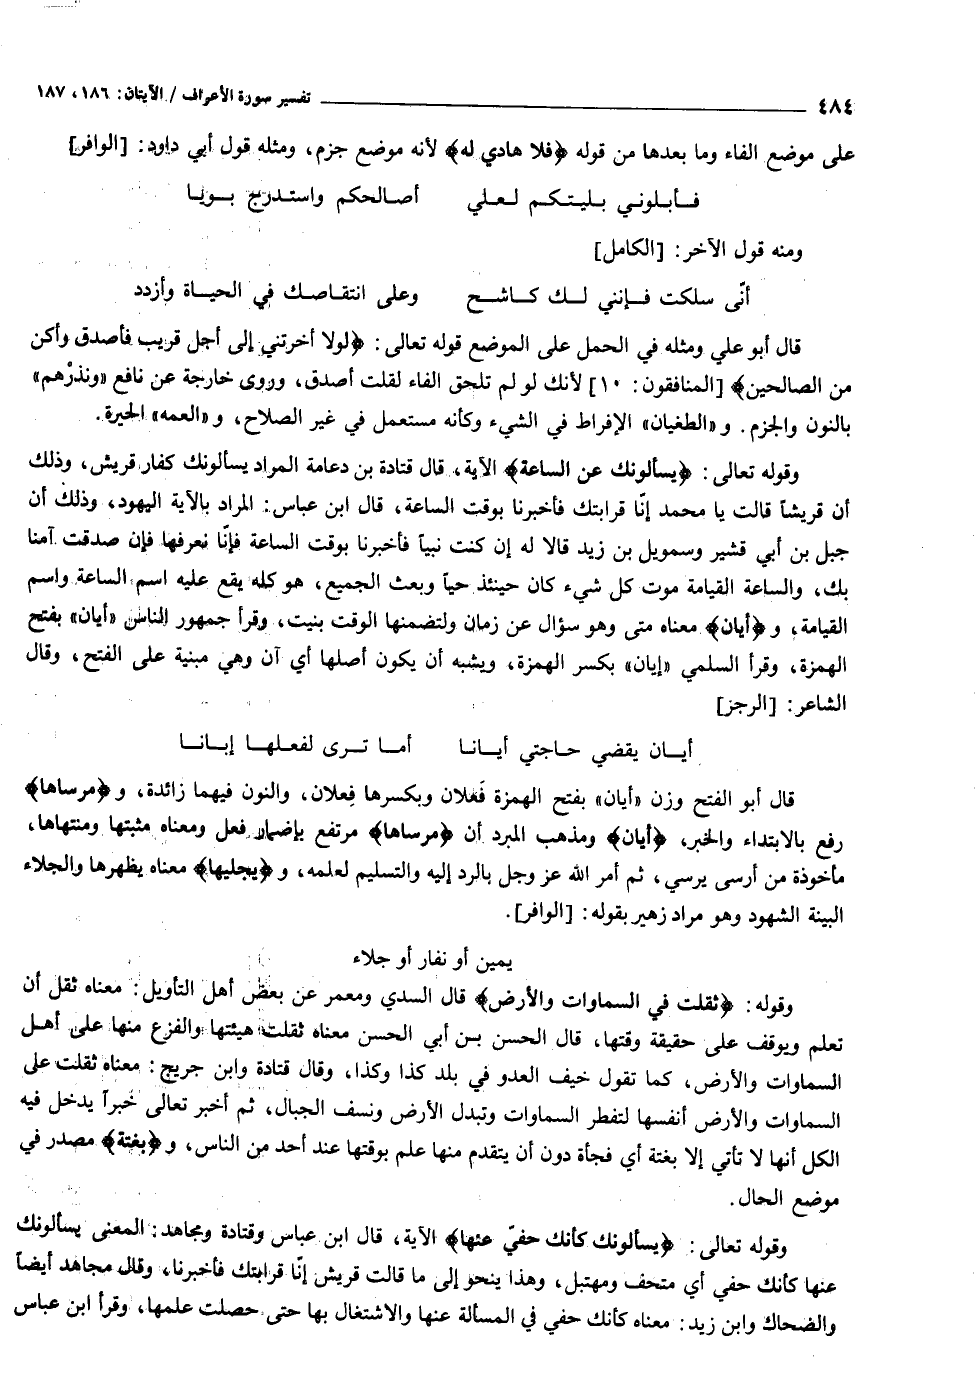 ٤٨٤ تفسير سورة الأعراف / الآيتان: ١٨٦، ١٨٧
على موضع الفاء وما بعدها من قوله ﴿فلا هادي له﴾ لأنه موضع جزم، ومثله قول أبي داود: [الوافر]
فـأبـلوني بـليتـكـم لـعـلي أصـالحكم واستـدرج بـويـا
ومنه قول الآخر: [الكامل]
أنّى سلكت فـإنني لـك كـاشـح وعلى انتقـاصـك في الحيـاة وأزدد
قال أبو علي ومثله في الحمل على الموضع قوله تعالى: ﴿لولا أخرتني إلى أجل قريب فأصدق وأكن
من الصالحين﴾ [المنافقون: ١٠] لأنك لو لم تلحق الفاء لقلت أصدق، وروى خارجة عن نافع «ونذرْهم»
بالنون والجزم. و«الطغيان» الإفراط في الشيء وكأنه مستعمل في غير الصلاح، و«العمه» الحيرة.
وقوله تعالى: ﴿يسألونك عن الساعة﴾ الآية، قال قتادة بن دعامة المراد يسألونك كفار قريش، وذلك
أن قريشاً قالت يا محمد إنّا قرابتك فأخبرنا بوقت الساعة، قال ابن عباس: المراد بالآية اليهود، وذلك أن
جبل بن أبي قشير وسمويل بن زيد قالا له إن كنت نبياً فأخبرنا بوقت الساعة فإنّا نعرفها فإن صدقت آمنا
بك، والساعة القيامة موت كل شيء كان حينئذ حياً وبعث الجميع، هو كله يقع عليه اسم الساعة واسم
القيامة، و﴿أيان﴾ معناه متى وهو سؤال عن زمان ولتضمنها الوقت بنيت، وقرأ جمهور الناس «أيان» بفتح
الهمزة، وقرأ السلمي «إيان» بكسر الهمزة، ويشبه أن يكون أصلها أي آن وهي مبنية على الفتح، وقال
الشاعر: [الرجز]
أيـان يقضي حـاجتي أيـانـا أمـا تـرى لفعلهـا إبـانـا
قال أبو الفتح وزن «أيان» بفتح الهمزة فَعْلان وبكسرها فِعلان، والنون فيهما زائدة، و﴿مرساها﴾
رفع بالابتداء والخبر، ﴿أيان﴾ ومذهب المبرد أن ﴿مرساها﴾ مرتفع بإضمار فعل ومعناه مثبتها ومنتهاها،
مأخوذة من أرسى يرسي، ثم أمر الله عز وجل بالرد إليه والتسليم لعلمه، و﴿يجليها﴾ معناه يظهرها والجلاء
البينة الشهود وهو مراد زهير بقوله: [الوافر].
يمين أو نفار أو جلاء
وقوله: ﴿ثقلت في السماوات والأرض﴾ قال السدي ومعمر عن بعض أهل التأويل: معناه ثقل أن
تعلم ويوقف على حقيقة وقتها، قال الحسن بـن أبي الحسن معناه ثقلت هيئتها والفزع منها على أهـل
السماوات والأرض، كما تقول خيف العدو في بلد كذا وكذا، وقال قتادة وابن جريج: معناه ثقلت على
السماوات والأرض أنفسها لتفطر السماوات وتبدل الأرض ونسف الجبال، ثم أخبر تعالى خبراً يدخل فيه
الكل أنها لا تأتي إلا بغتة أي فجأة دون أن يتقدم منها علم بوقتها عند أحد من الناس، و﴿بغتة﴾ مصدر في
موضع الحال.
وقوله تعالى: ﴿يسألونك كأنك حفيّ عنها﴾ الآية، قال ابن عباس وقتادة ومجاهد: المعنى يسألونك
عنها كأنك حفي أي متحف ومهتبل، وهذا ينحو إلى ما قالت قريش إنّا قرابتك فأخبرنا، وقال مجاهد أيضاً
والضحاك وابن زيد: معناه كأنك حفي في المسألة عنها والاشتغال بها حتى حصلت علمها، وقرأ ابن عباس